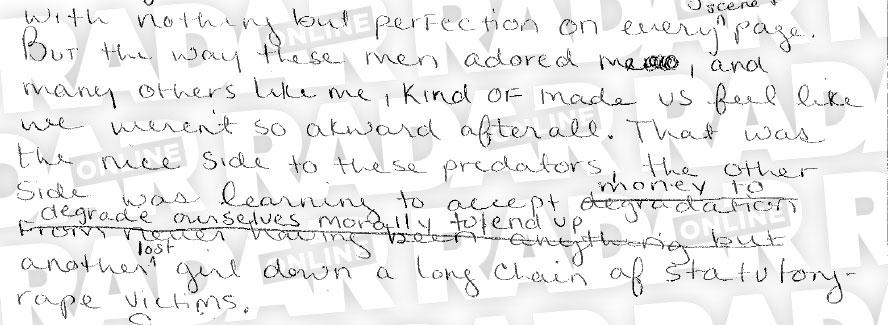 scene
with nothing but perfection on every page.
But the way these men adored me, and
many others like me, kind of made us feel like
we weren't so akward afterall. That was
the nice side to these predators, the other
money to
side was learning to accept degradation
degrade ourselves morally to end up
from never having been anything but
lost
another girl down a long chain of statutory-
rape victims.
RADAR ONLINE